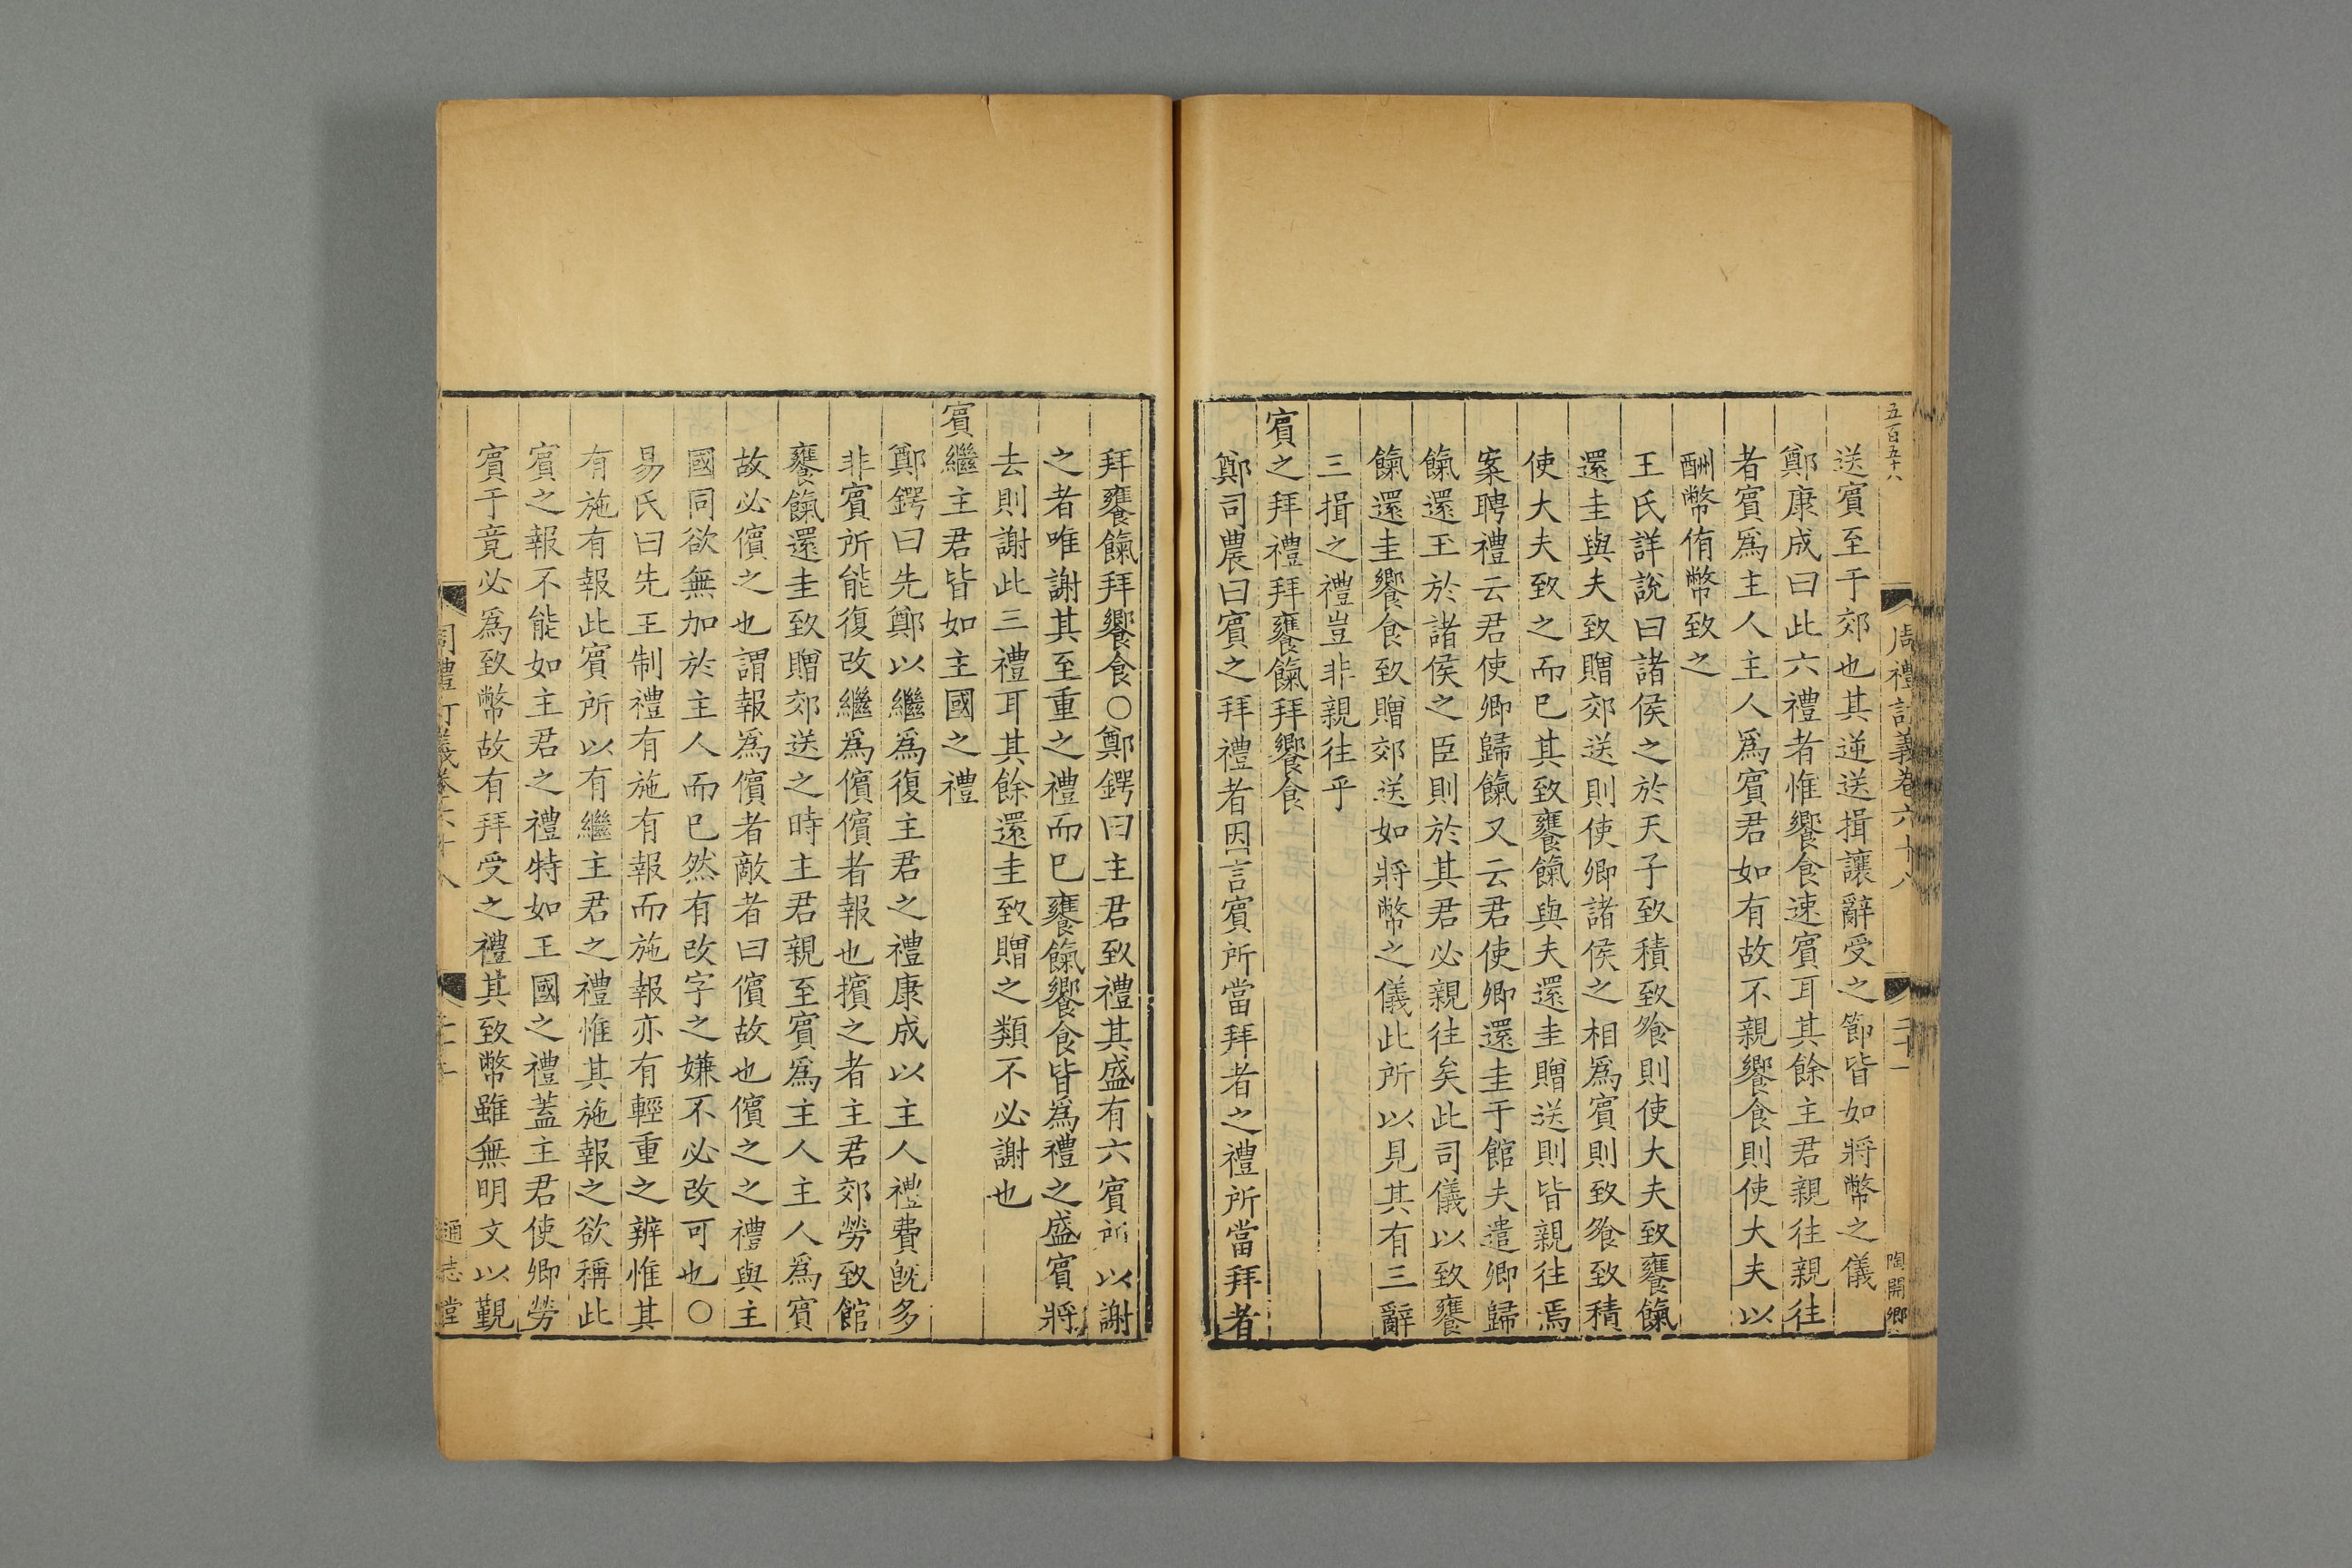 五百五十八
周禮訂義卷六十八
二十一
陶開鄉
送賓至于郊也其逆送揖讓辭受之節皆如將幣之儀
鄭康成曰此六禮者惟饗食速賓耳其餘主君親往親往
者賓爲主人主人爲賓君如有故不親饗食則使大夫以
酬幣侑幣致之
王氏詳說曰諸侯之於天子致積致飱則使大夫致饔餼
還圭與夫致贈郊送則使卿諸侯之相爲賓則致飱致積
使大夫致之而已其致饔餼與夫還圭贈送則皆親往焉
案聘禮云君使卿歸餼又云君使卿還圭于館夫遣卿歸
餼還玉於諸侯之臣則於其君必親往矣此司儀以致饔
餼還圭饗食致贈郊送如將幣之儀此所以見其有三辭
三揖之禮豈非親往乎
賓之拜禮拜饔餼拜饗食
鄭司農曰賓之拜禮者因言賓所當拜者之禮所當拜者
拜饔餼拜饗食○鄭鍔曰主君致禮其盛有六賓所以謝
之者唯謝其至重之禮而已饔餼饗食皆爲禮之盛賓將
去則謝此三禮耳其餘還圭致贈之類不必謝也
賓繼主君皆如主國之禮
鄭鍔曰先鄭以繼爲復主君之禮康成以主人禮費旣多
非賓所能復改繼爲儐儐者報也擯之者主君郊勞致館
饔餼還圭致贈郊送之時主君親至賓爲主人主人爲賓
故必儐之也謂報爲儐者敵者曰儐故也儐之之禮與主
國同欲無加於主人而已然有改字之嫌不必改可也○
易氏曰先王制禮有施有報而施報亦有輕重之辨惟其
有施有報此賓所以有繼主君之禮惟其施報之欲稱此
賓之報不能如主君之禮特如王國之禮蓋主君使卿勞
賓于竟必爲致幣故有拜受之禮其致幣雖無明文以觀
周禮訂義卷六十八
通志堂